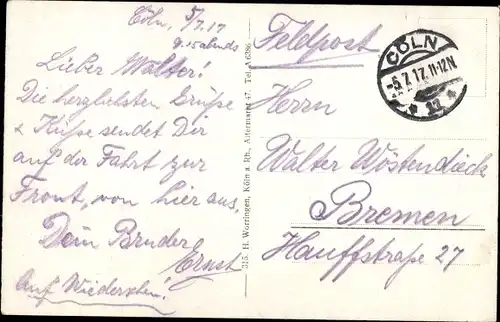 Cöln, 5/7.17
9.15 abends
Lieber Walter!
Die herzlichsten Grüße
& Küsse sendet Dir
auf der Fahrt zur
Front, von hier aus,
Dein Bruder
Ernst
Auf Wiedersehen!
313 H. Worringen, Köln a. Rh., Altermarkt 47. Tel. A 6386.
Feldpost
CÖLN
-5.7.17.11-12N
* 1
Herrn
Walter Wöstendieck
Bremen
Hauffstraße 27